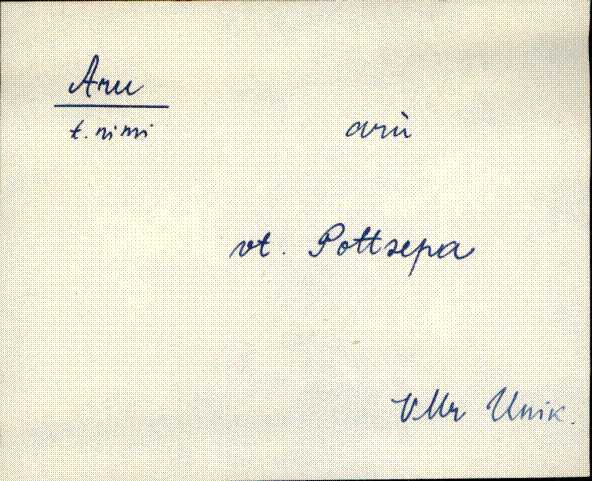 Aru
t. nimi arù
vt. Pottsepa
VMr Unik.